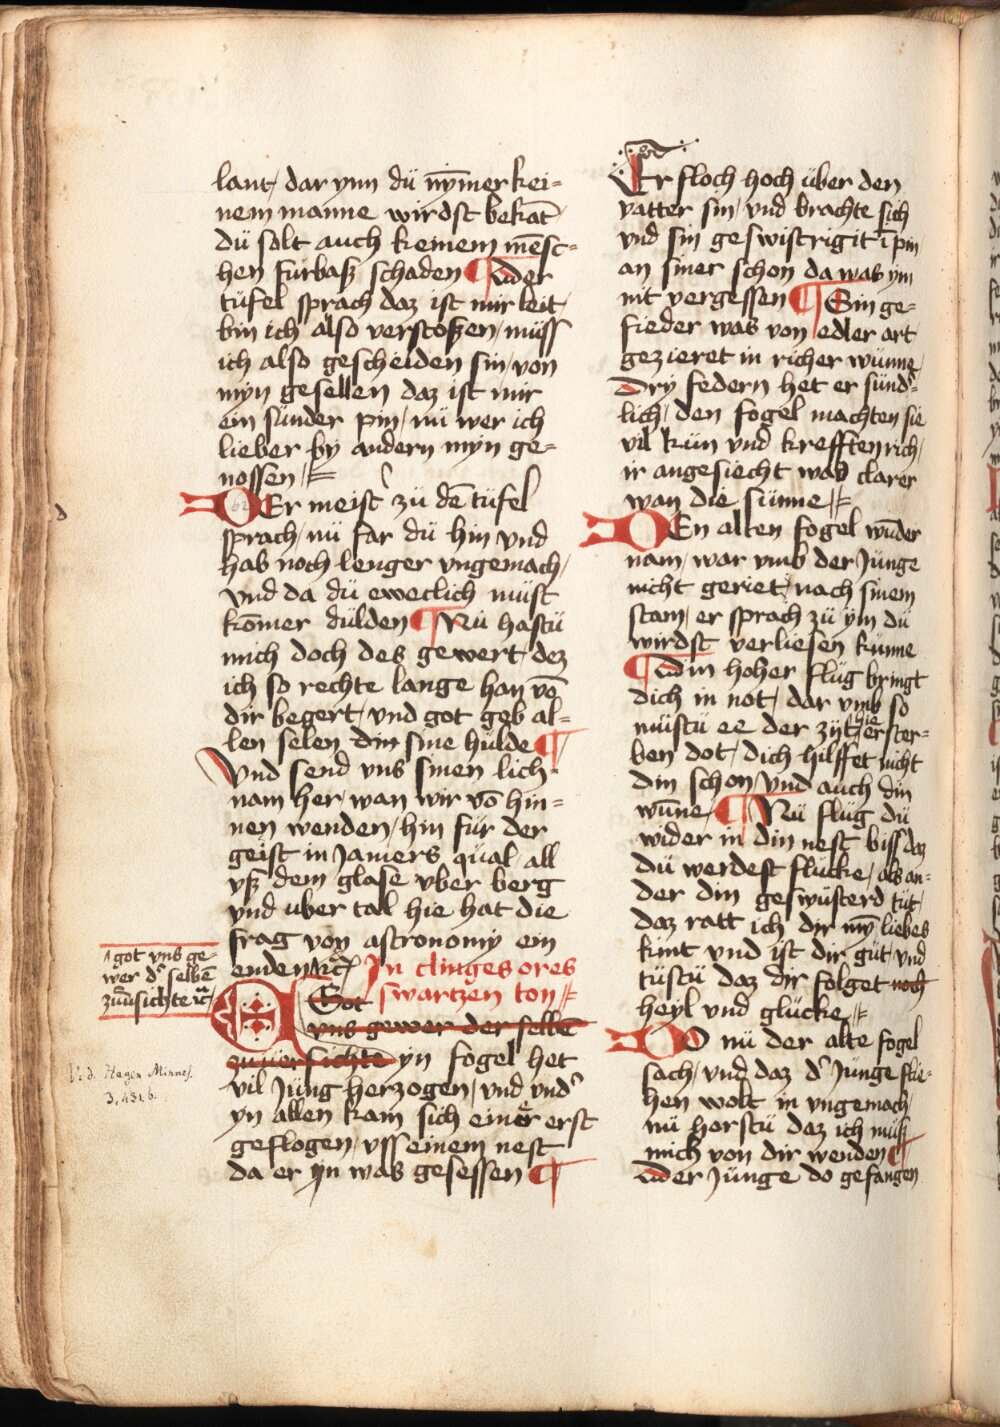 lant, dar ynn dü nȳmer kei=
nem manne wirdst bekāt
dü solt auch keinem mēsc=
hen fürbaß schaden ¶ Der
tüfel sprach daz ist mir leit,
bin ich also verstoßen, müss
ich also gescheiden sin, von
myn gesellen daz ist mir
ein sünder pin, nü wer ich
lieber by andern myn ge=
nossen,
DEr meist' zü dē tüfel
sprach, nü far dü hin vnd
hab noch lenger vngemach,
vnd da dü eweclich müst
kōmer dülden ¶ Nü hastü
mich doch des gewert, dez
ich so rechte lange han vō
dir begert, vnd got geb al=
len selen din sine hülde ¶
Vnd send vns sinen lich=
nam her, wan wir vō hin=
nen wenden, hin für der
geist in Jamers qual, all
vß dem glase vber berg
vnd uber tal hie hat die
frag von astronomy ein
enden, ꝛc̄ In clingesores
swartzen ton
Got
vns gewer der selbē
zuuersichte yn fogel het
vil Jung herzogen, vnd vnd'
yn allen kam sich einer erst
geflogen, vss einem nest
da er yn was gesessen ¶
^ got vns ge
wer d' selbē
zuūsichte ꝛc̄
V. d. Hagen Minnes.
3, 431. b.
Er floch hoch über den
vatter sin, vnd brachte sich
vnd sin geswistrigit ī pin,
an siner schon da was ym
nit vergessen ¶ Sin ge=
fieder was von edler art
gezieret in richer wünne,
Dry federn het er sünd'=
lich, den fogel machten sie
vil kün vnd krefftenrich,
ir angesiecht was clarer
wan die sünne,
DEn alten fogel wūder
nam, war vmb der Junge
nicht geriet, nach sinem
stam, er sprach zü ym dü
wirdst verliesen künne
¶ Din hoher flüg bringt
dich in not, dar vmb so
müstü ee der zyt hie erster=
ben dot, dich hilffet nicht
din schon, vnd auch din
wūne, ¶ Nü flüg dü
wider in din nest biss daz
dü werdest flücke, als an=
der din geswüsterd tüt,
daz ratt ich dir mȳ liebes
kint vnd ist dir güt, vnd
tüstü daz dir folget noch
heyl vnd glücke
DO nü der alte fogel
sach, vnd daz d' Junge flie=
hen wolt in vngemach,
nü horstü daz ich müß
mich von dir wenden ¶
Der Jünge do gefangen